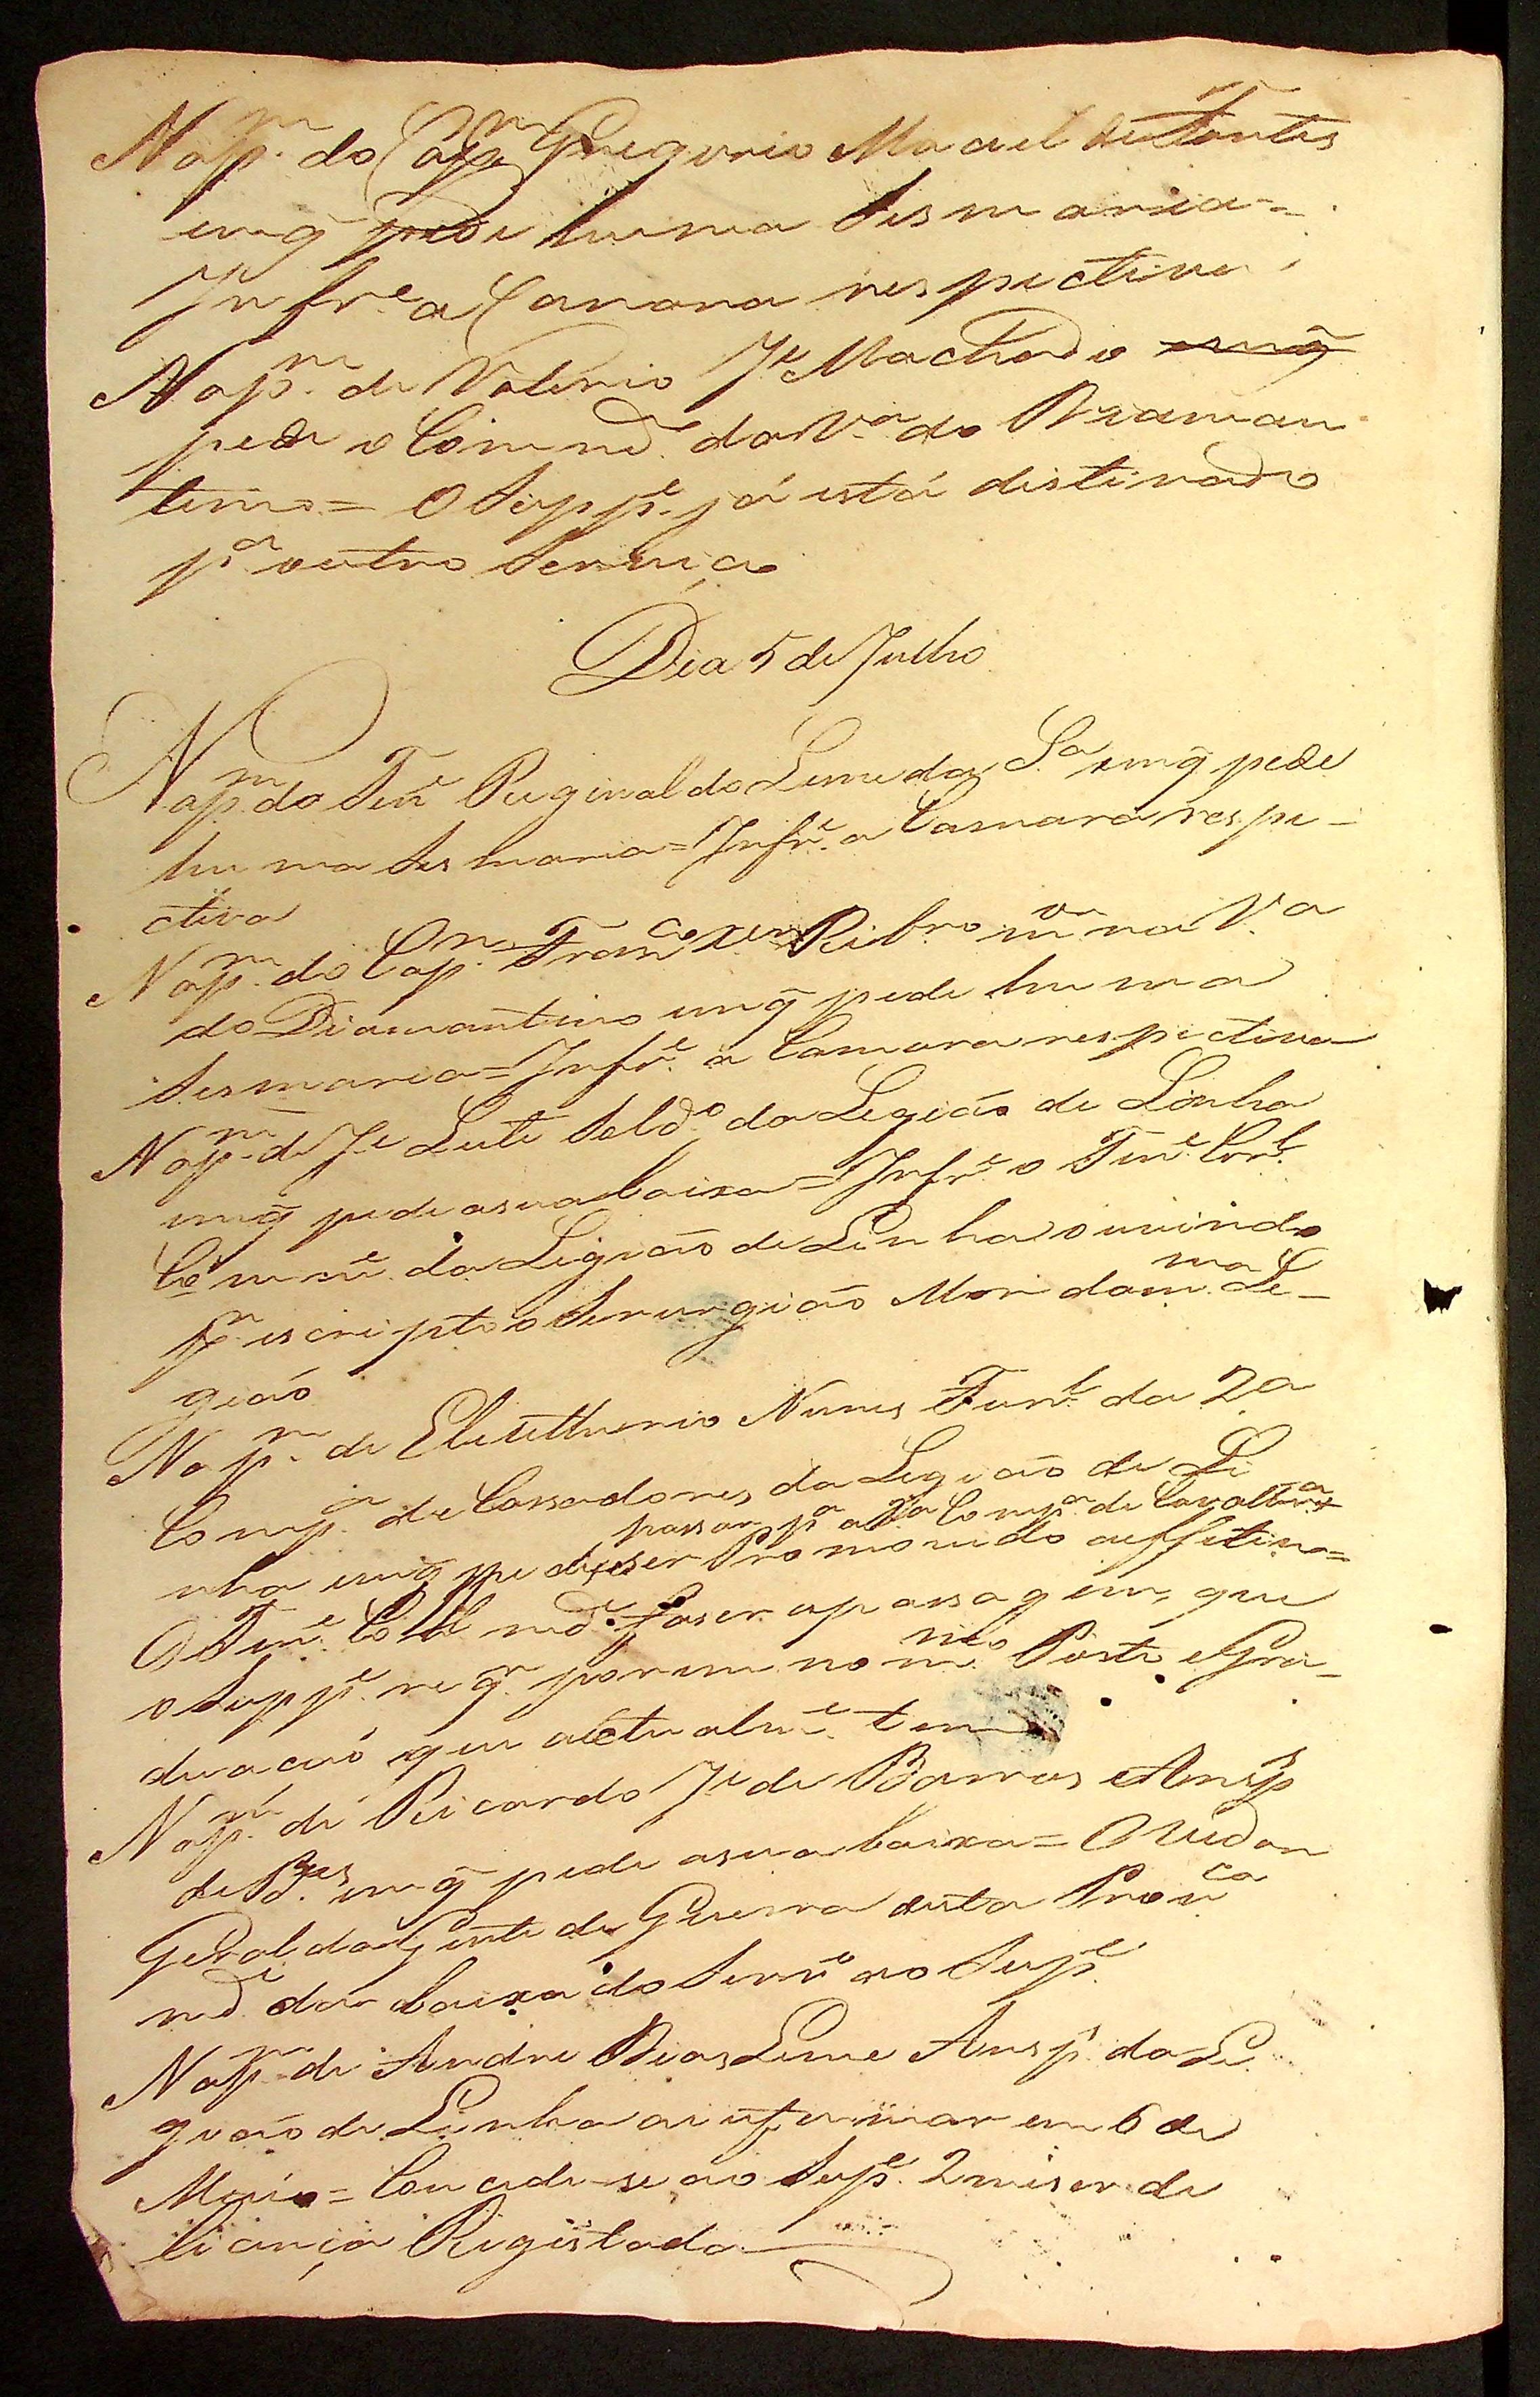 Na p.m do Cap.m Gregorio Maciel de Fontes
em q̃ pede huma Sesmaria =
Infr.e a Camara respectiva
Na p.m de Valerio J.e Machado em q̃
pede o Commd.e da V.a do Diaman
tino = O Supp.e já está distinado
p.a outro Serviço
Dia 5 de Julho
Na p.m do Ten.e Reginaldo Leme da S.a em q̃ pede
huma Sesmaria = Infr.e a Camara respe-
ctiva
Na p.m do Cap.m Fran.co X.er Ribr.o m.or na V.a
do Diamantino em q̃ pede huma
Sesmaria = Infr.e a Camara respectiva
Na p.m de J.e Leite Sold.o da Legião de Linha
em q̃ pede a sua baixa = Infr.e o Ten.e Cor.l
Comm.e da Legião de Linha ouvindo
p.r escripto o Serurgião Mor da m.ma Le-
gião
Na p.m de Eleuttherio Nunes Fur.l da 2.a
Comp.a de Cassadores da Legião de Li
passar p.a a 2.a Comp.a de Cavallr.a
nha em q̃ pede ser Promovido a effetivo =
O Ten.e Cor.l md.e faser a passagem, que
o Supp.e req.r porem no m.mo Posto e Gra-
duação que actualm.e tem
Na p.m de Ricardo J.e de Barros Ansp.
de P.es em q̃ pede a sua baixa = O Vedor
Geral da Gente de Guerra desta Prov.ca
md.e dar baixa do Serv.o ao Sup.e
Na p.m de Andre Dias Leme Ansp. da Le
gião de Linha a informar em 6 de
Maio = Concede-se ao Sup.e 2 meses de
licença Registada